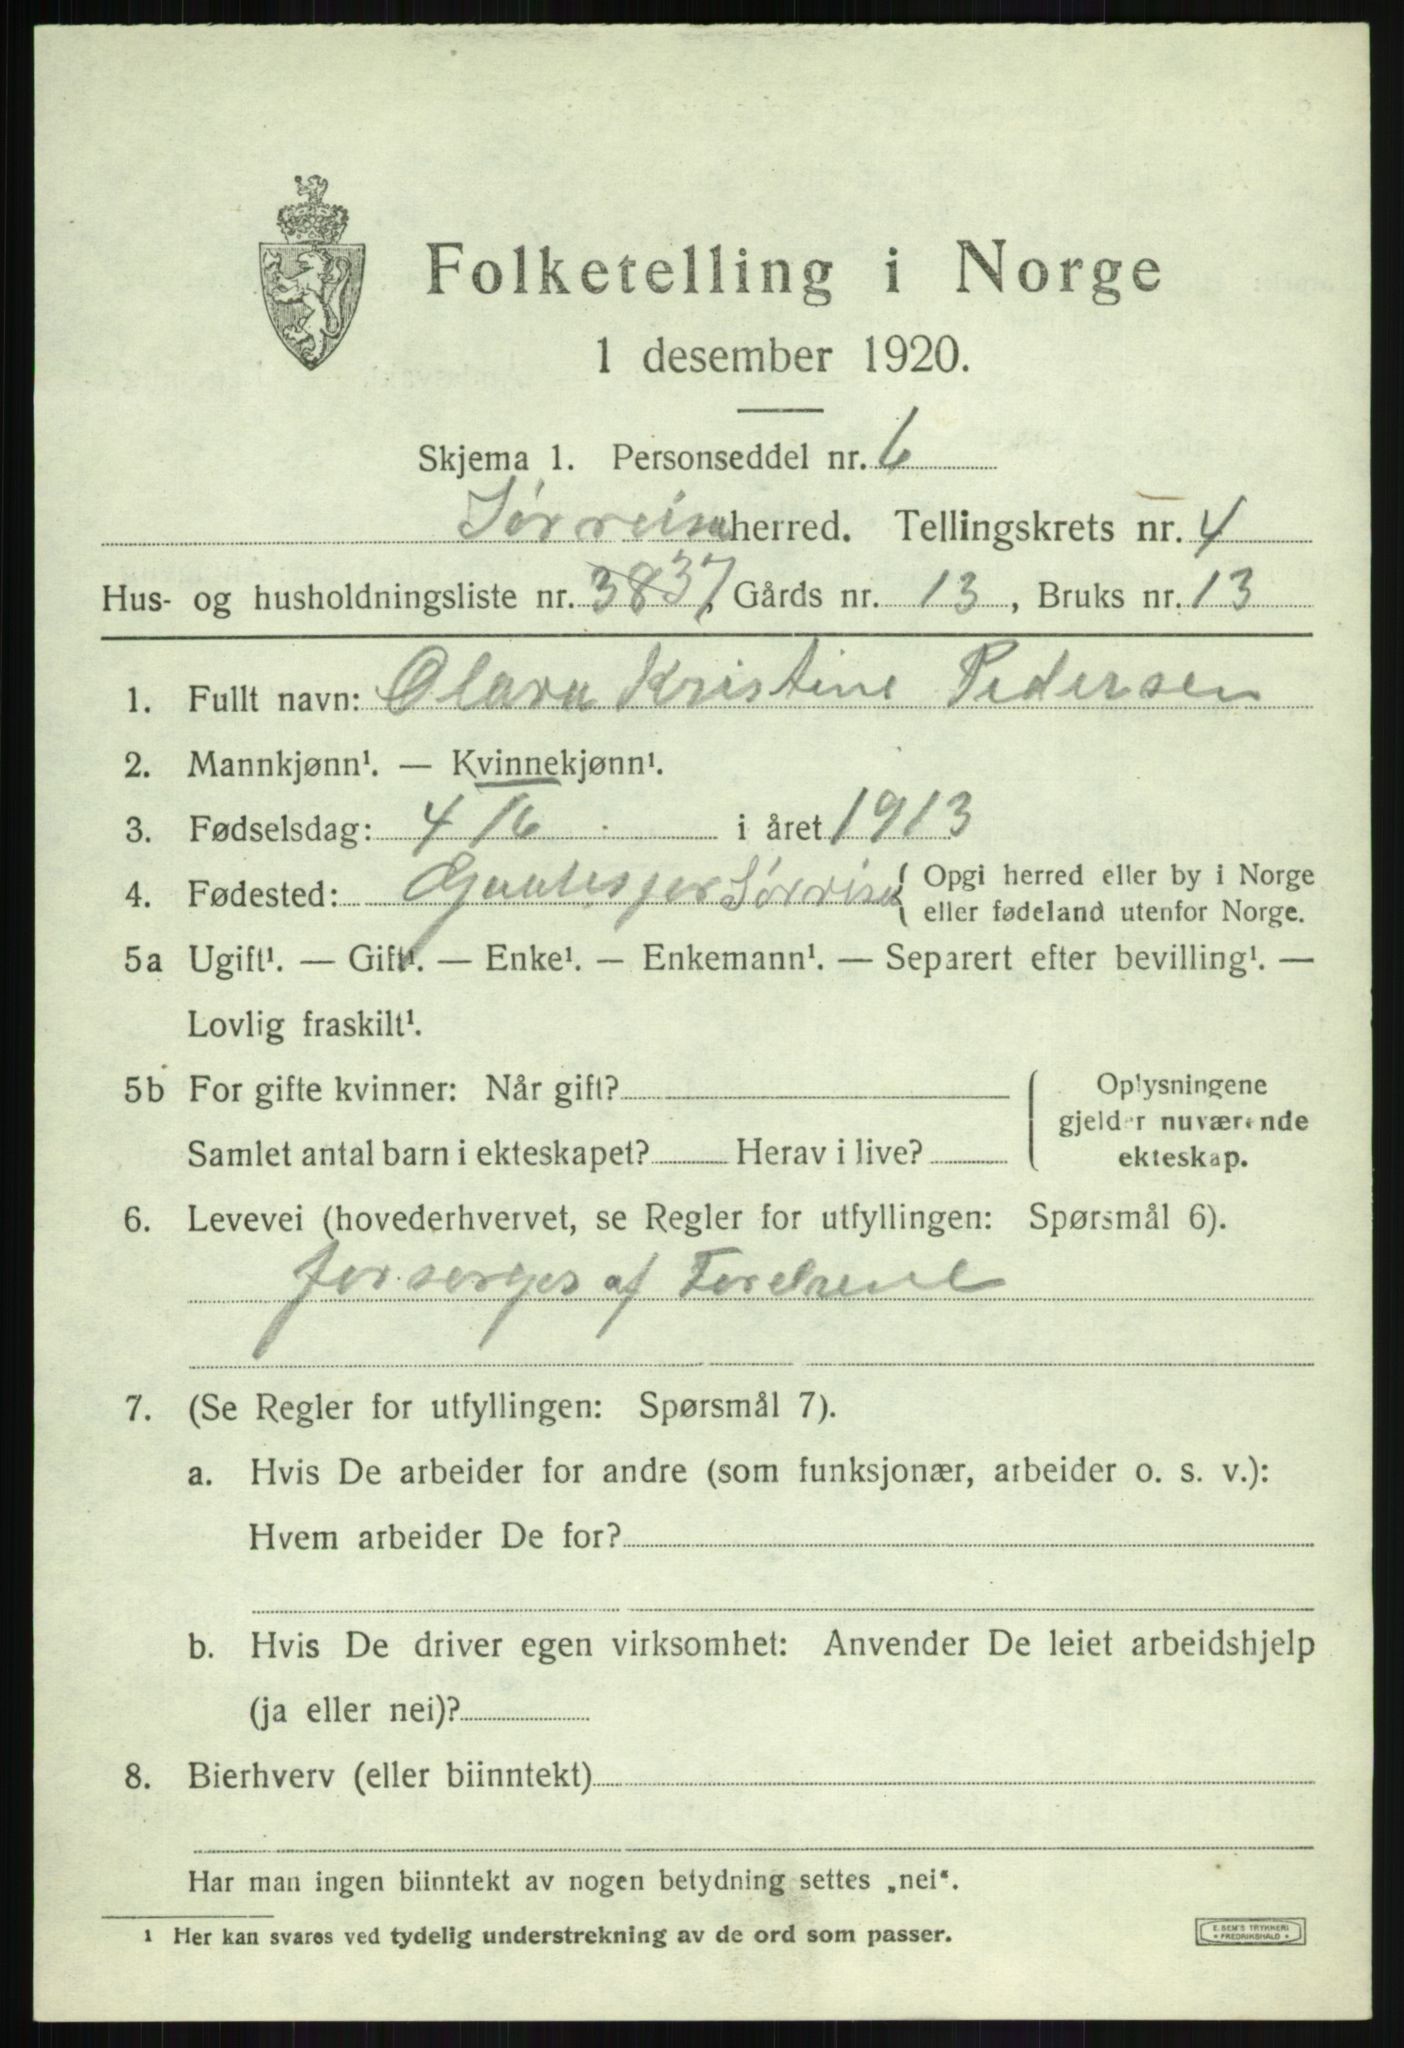 Folketelling i Norge
1 desember 1920.
Skjema 1. Personseddel nr. 6
Sørreisa herred. Tellingskrets nr. 4
Hus- og husholdningsliste nr. 38 37, Gårds nr. 13, Bruks nr. 13
1. Fullt navn: Olava Kristine Pedersen
2. Mannkjønn¹. — Kvinnekjønn¹.
3. Fødselsdag: 4/6 i året 1913
4. Fødested: Sørreisa { Opgi herred eller by i Norge
eller fødeland utenfor Norge.
5a Ugift¹. — Gift¹. — Enke¹. — Enkemann¹. — Separert efter bevilling¹. —
Lovlig fraskilt¹.
5b For gifte kvinner: Når gift? Oplysningene
gjelder nuværende
Samlet antal barn i ekteskapet? Herav i live? ekteskap.
6. Levevei (hovederhvervet, se Regler for utfyllingen: Spørsmål 6).
forsørges af Forelrene
7. (Se Regler for utfyllingen: Spørsmål 7).
a. Hvis De arbeider for andre (som funksjonær, arbeider o. s. v.):
Hvem arbeider De for?
b. Hvis De driver egen virksomhet: Anvender De leiet arbeidshjelp
(ja eller nei)?
8. Bierhverv (eller biinntekt)
Har man ingen biinntekt av nogen betydning settes „nei“.
¹ Her kan svares ved tydelig understrekning av de ord som passer.
E. SEM'S TRYKKERI
* FREDRIKSHALD *